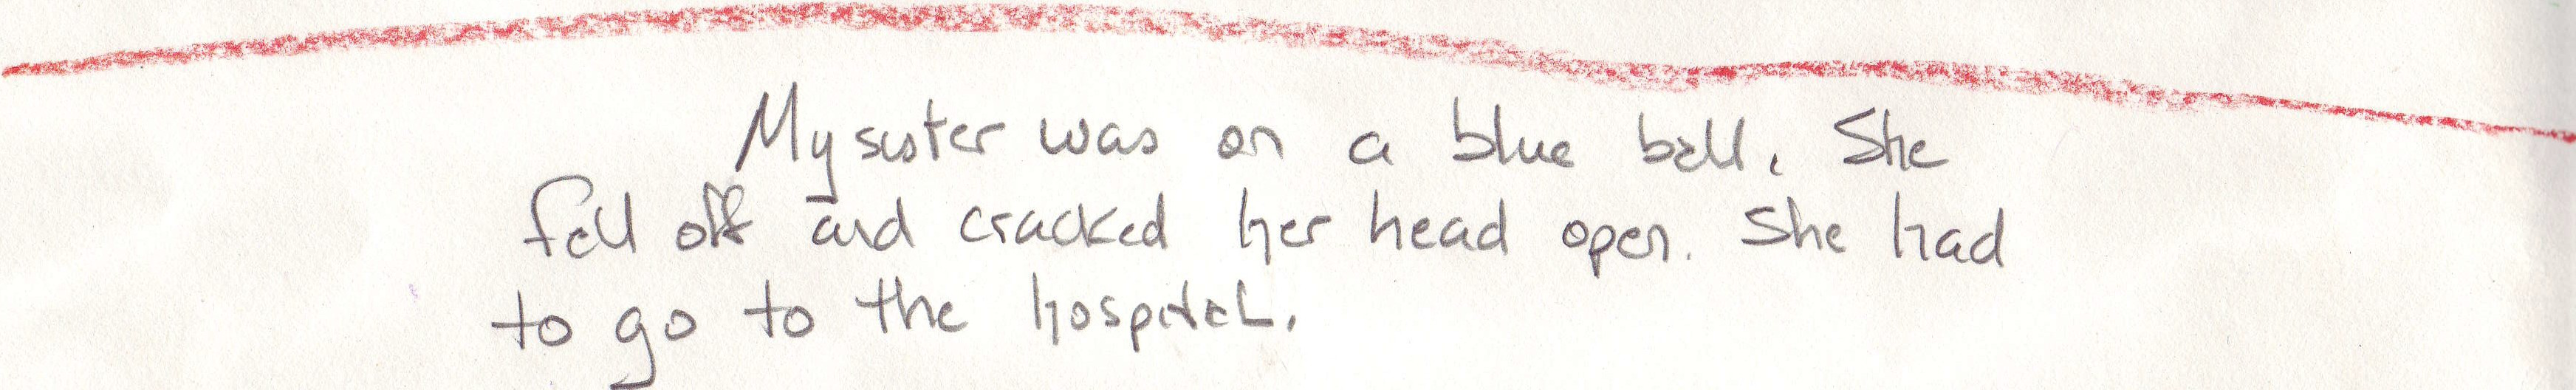 My sister was on a blue ball. She
fell off and cracked her head open. She had
to go to the hospital.